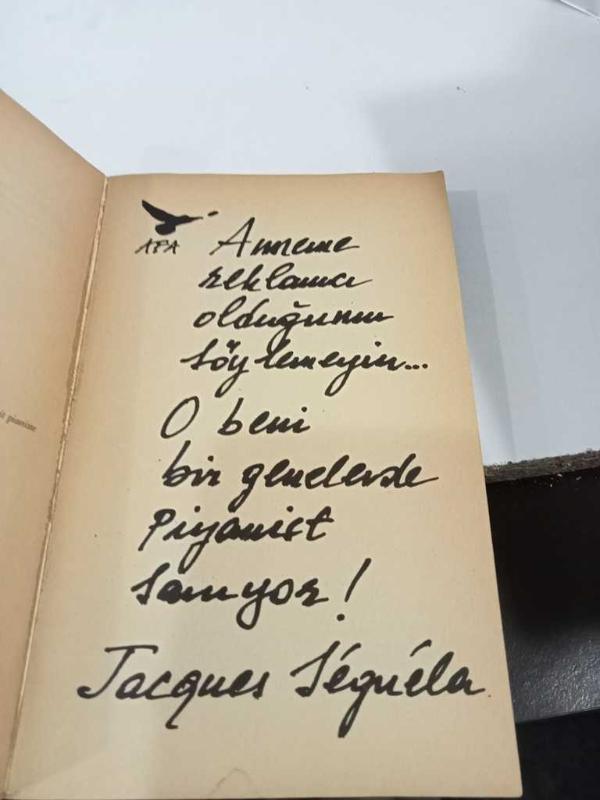 AFA
Anneme
reklamcı
olduğumu
söylemeyin...
O beni
bir genelevde
Piyanist
sanıyor!
Jacques Séguéla